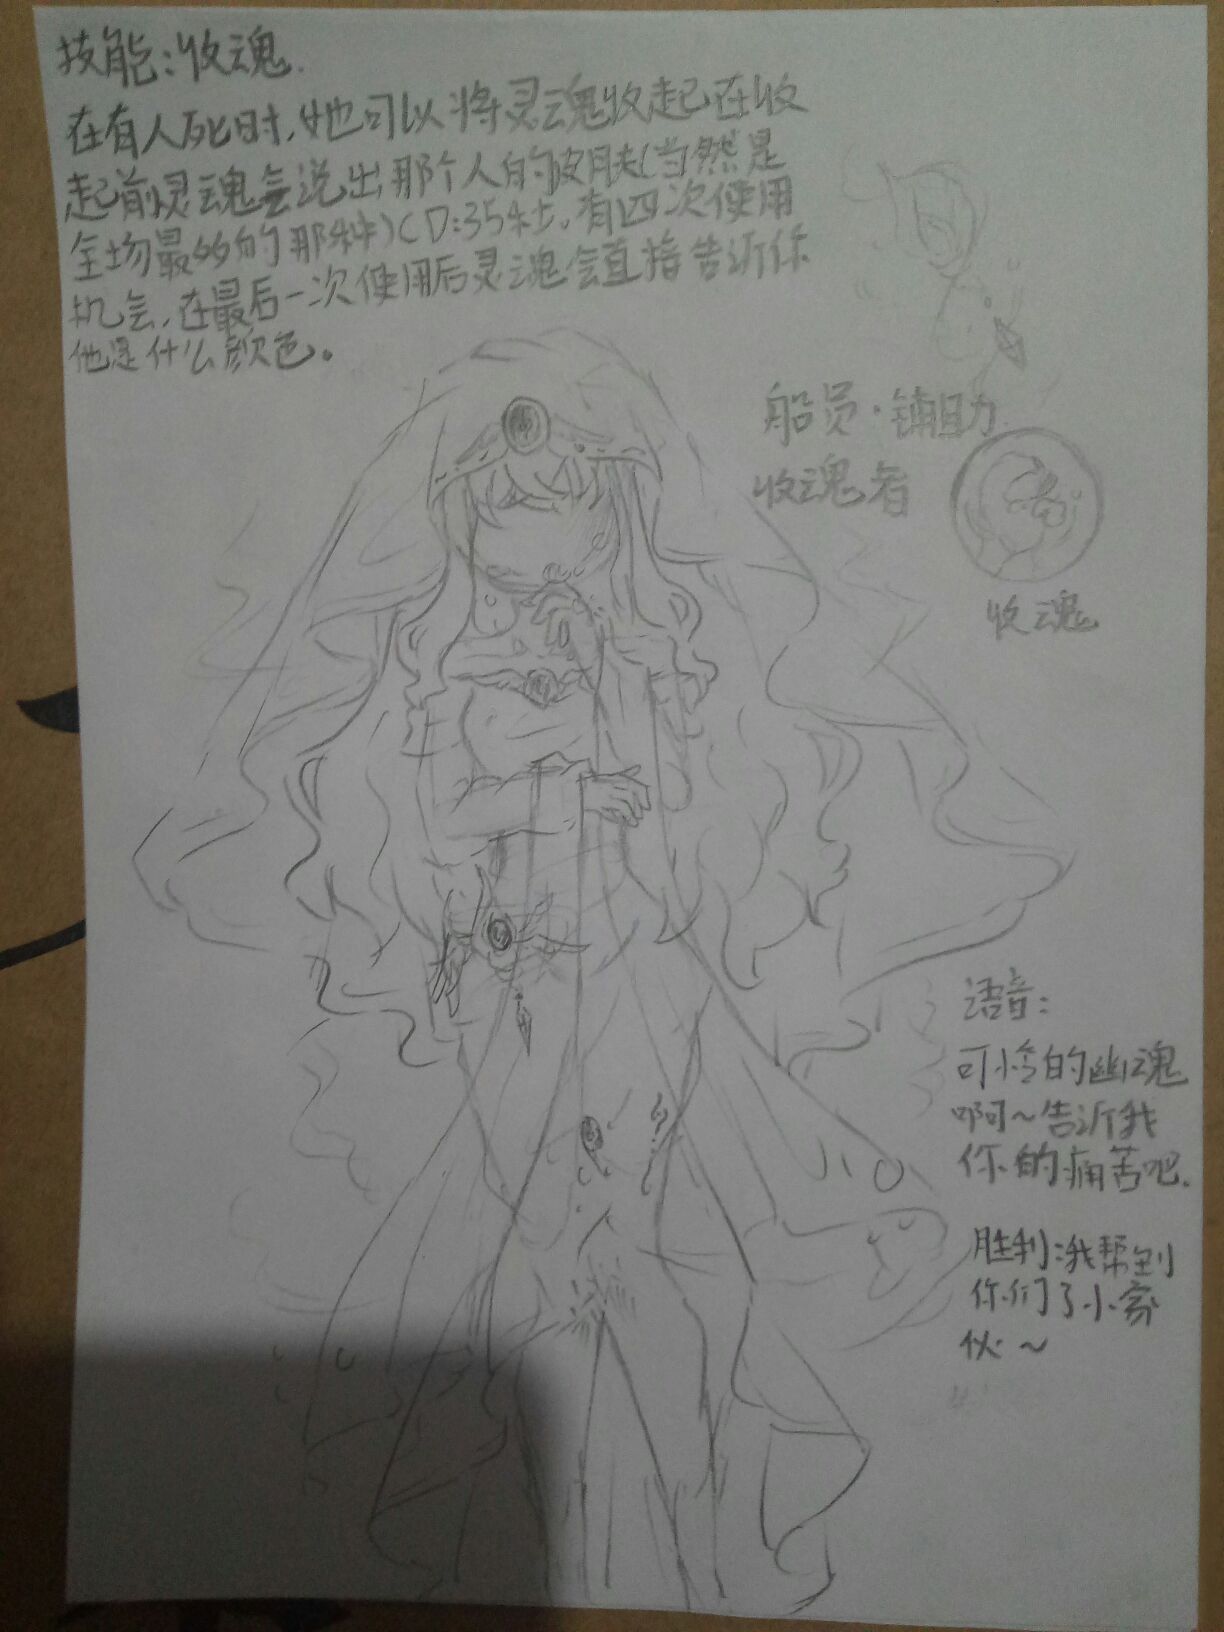 技能:收魂.
在有人死时,她可以将灵魂收起在收
起前灵魂会说出那个人的皮肤(当然是
全场最多的那种)CD:35秒,有四次使用
机会,在最后一次使用后灵魂会直接告诉你
他是什么颜色。
船员·辅助
收魂者
收魂
语音:
可怜的幽魂
啊~告诉我
你的痛苦吧.
胜利:我帮到
你们了小家
伙~